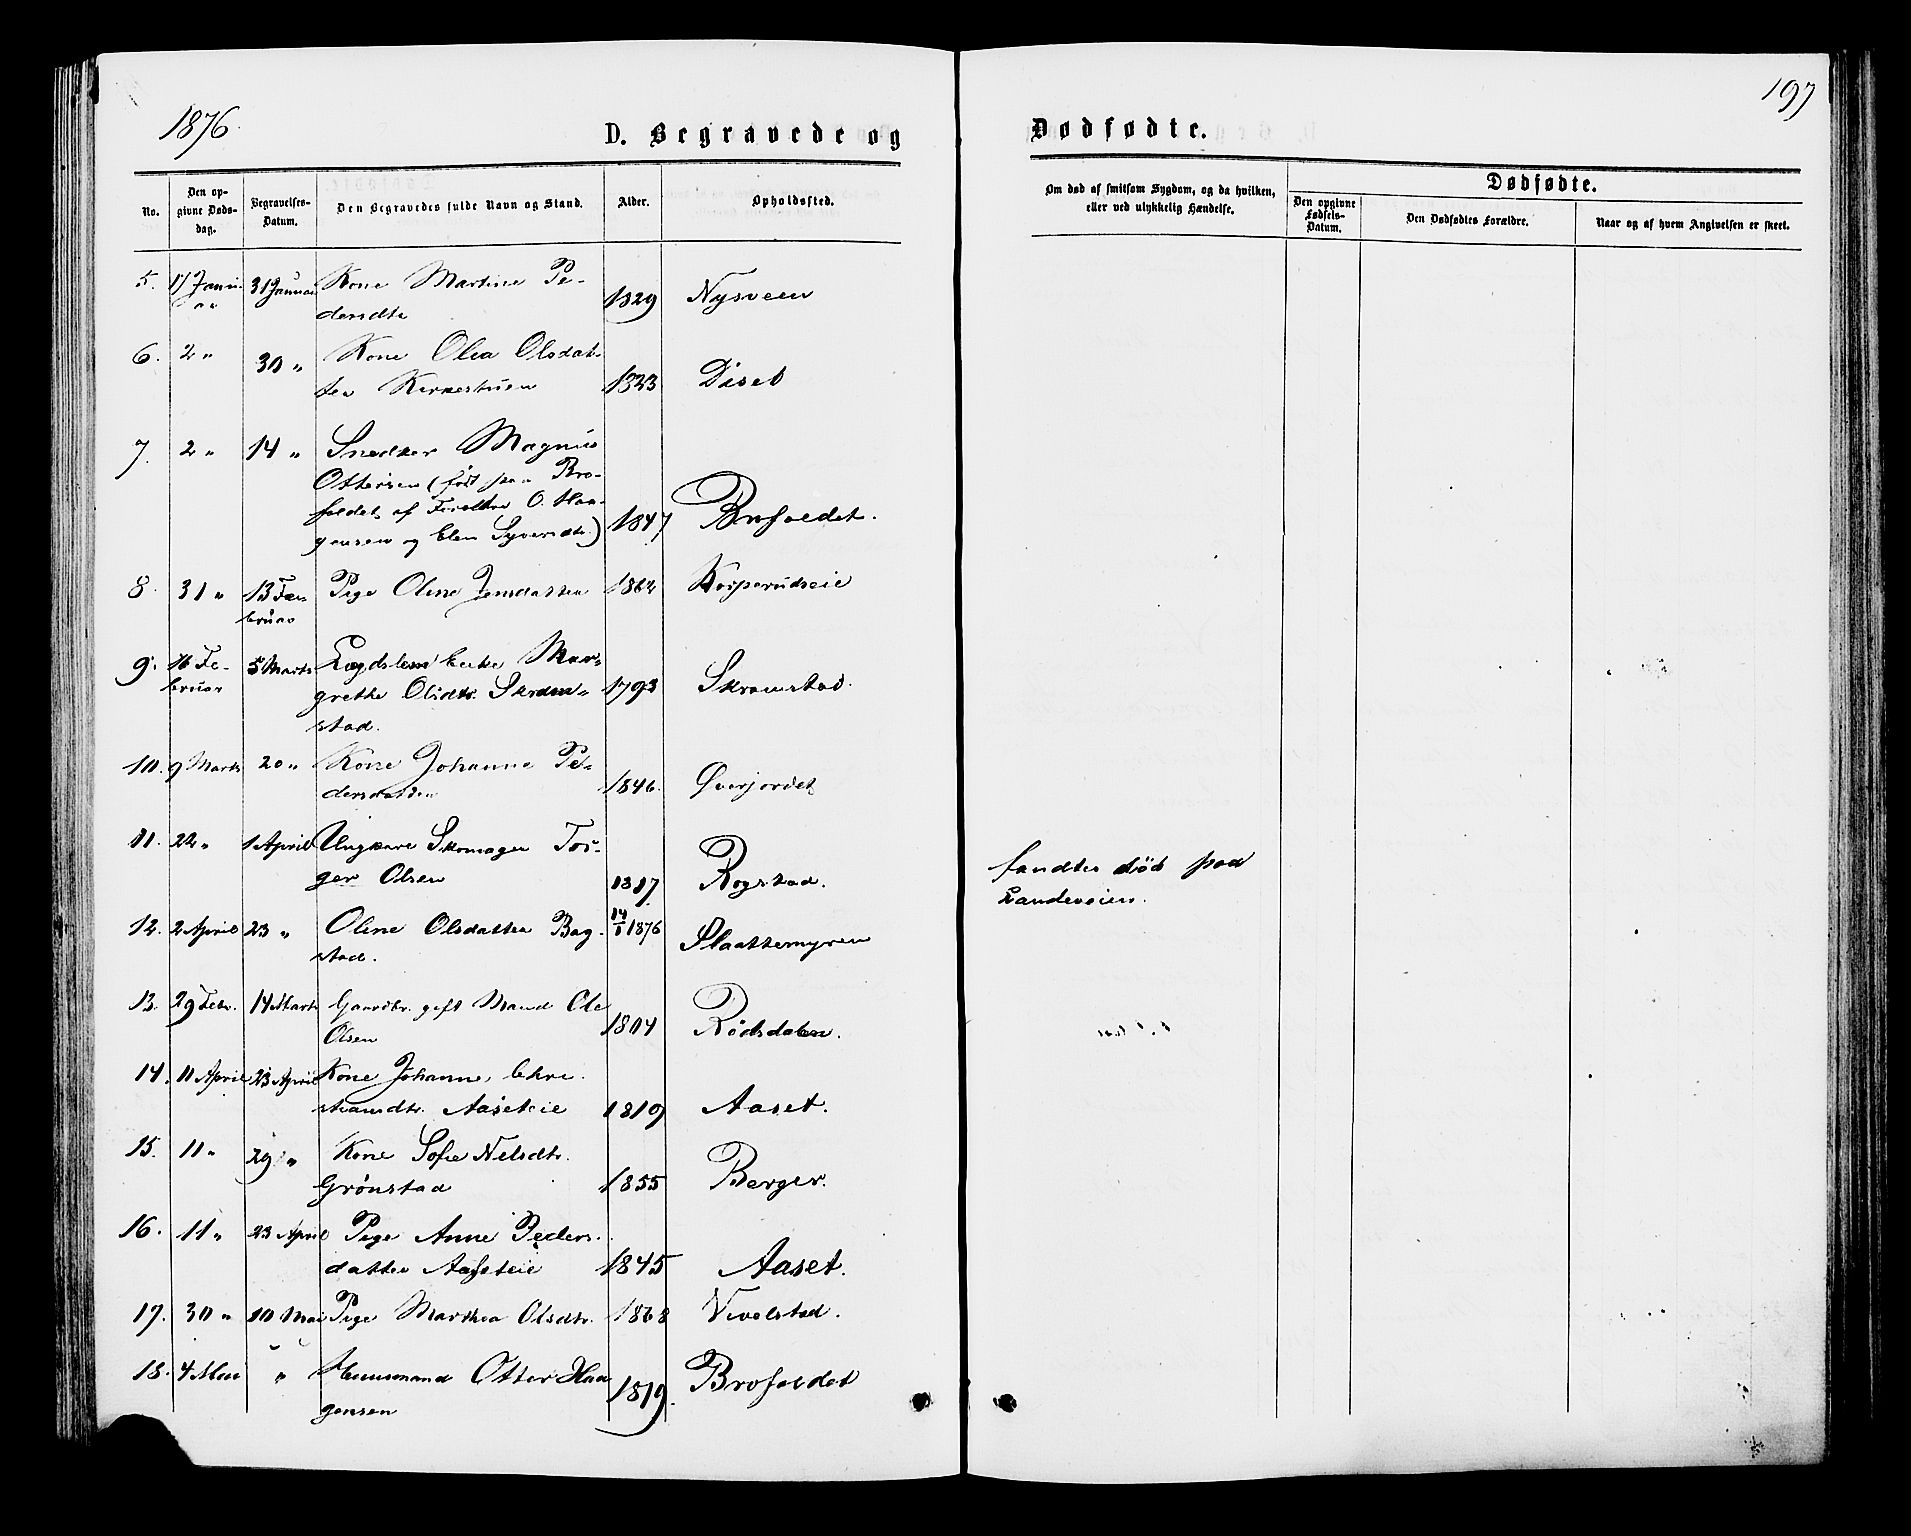 1876.
197
D. Begravede og
Dødfødte.
No.
Den op-
givne Døds-
dag.
Begravelses-
Datum.
Den Begravedes fulde Navn og Stand.
Alder.
Opholdssted.
Om død af smitsom Sygdom, og da hvilken,
eller ved ulykkelig Hændelse.
Dødfødte.
Den opgivne
Fødsels-
Datum.
Den Dødfødtes Forældre.
Naar og af hvem Angivelsen er skeet.
5. 17 Janu- 31 Januar Kone Martine Pe-
ar dersdtr 1829 Nysveen
6. 2 " 30 " Kone Olea Olsdat-
ter Kirkestuen 1823 Diset
7. 2 " 14 " Snedker Magnus
Ottersen (født paa Bro-
foldet af Foreldre O. Haa-
gensen og Elen Syversdtr.) 1847 Brofoldet.
8. 31 " 13 Fe- Pige Oline Jensdatter 1862 Korperudseie
bruar
9. 16 Fe- 5 Marts Lægdslem Enke Mar-
bruar grethe Olsdtr. Skram- 1793 Skramstad.
stad.
10. 9 Marts 20 " Kone Johanne Pe-
dersdatter 1846. Øverjordet
11. 22 " 1 April Ungkarl Skomager Tor-
ger Olsen 1817 Rogstad. fandtes død paa
Landeveien.
12. 2 April 23 " Oline Olsdatter Bag- 14/1 1876 Slaattemyren
stad.
13. 29 Febr. 14 Marts Gaardbr. gift Mand Ole
Olsen 1804 Rødsdalen.
14. 11 April 23 April Kone Johanne Chri-
stiansdtr. Aaseteie 1819 Aaset.
15. 11 " 29 " Kone Sofie Nelsdtr.
Grønstad 1855 Berger.
16. 11 " 23 April Pige Anne Peders-
datter Aaseteie 1845 Aaset.
17. 30 " 10 Mai Pige Marthea Olsdtr. 1868 Vivelstad.
18. 4 Mai " Huusmand Otter Haa
gensen 1819. Brofoldet